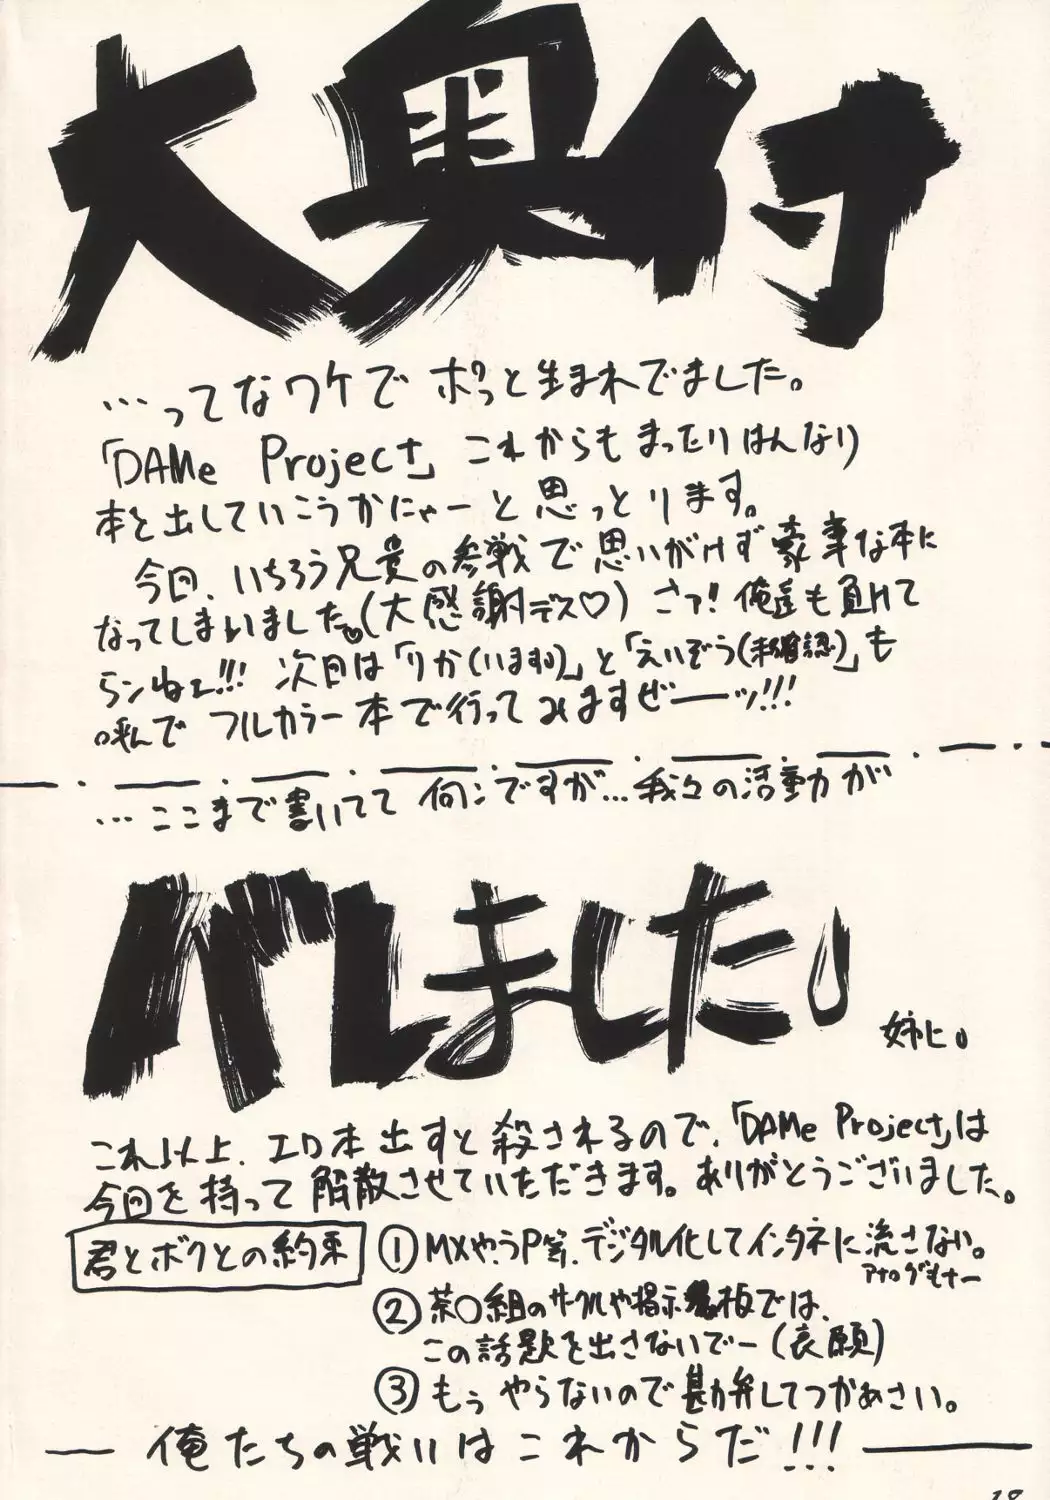 大奥付
…ってなワケで ポっと生まれでました。
「DAMe Project」これからもまったりはんなり
本を出していこうかにゃーと思っとります。
今回、いちろう兄貴の参戦で思いがけず豪華な本に
なってしまいました。(大感謝デス♡) さァ!俺達も負けて
らンねェ!!! 次回は「りか(いますゞ)」と「えいぞう(未確認)」も
呼んで フルカラー本で行ってみますぜーーッ!!!
…ここまで書いてて何ンですが…我々の活動が
バレました。
姉ヒ。
これ以上、エロ本出すと殺されるので、「DAMe Project」は
今回を持って解散させていただきます。ありがとうございました。
君とボクとの約束
①MXやうP等、デジタル化してインタネに流さない。
アナログもナー
②茶〇組のサークルや掲示板では、
この話題を出さないでー(哀願)
③もぅ やらないので勘弁してつかぁさい。
俺たちの戦いはこれからだ!!!